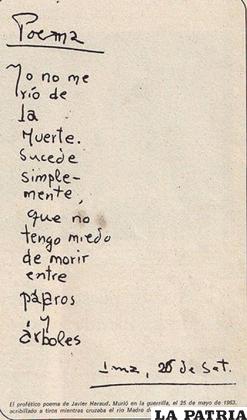 Poema
Yo no me
río de
la
Muerte.
Sucede
simple-
mente,
que no
tengo miedo
de morir
entre
pájaros
y
árboles
El profético poema de Javier Heraud. Murió en la guerrilla, el 25 de mayo de 1963,
acribillado a tiros mientras cruzaba el río Madre de
LA PATRIA